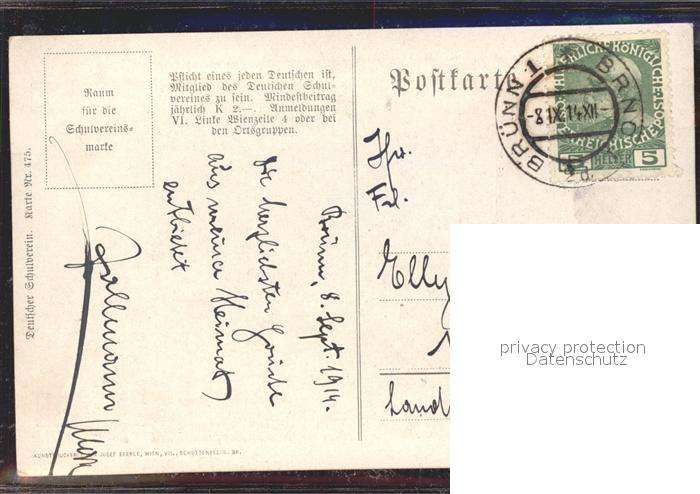 Raum
für die
Schulvereins=
marke
Pflicht eines jeden Deutschen ist,
Mitglied des Deutschen Schul-
vereines zu sein. Mindestbeitrag
jährlich K 2.—. Anmeldungen
VI. Linke Wienzeile 4 oder bei
den Ortsgruppen.
Deutscher Schulverein. Karte Nr. 475.
Brünn, 8. Sept. 1914.
Die herzlichsten Grüße
aus meiner Heimat
entbietet
JOSEF EBERLE, WIEN, VII., SCHOTTENFELDG. 38.
Postkarte
BRÜNN 1 BRNO
8.IX.14 XII
HELLER 5
Frl.
Elly
Land
privacy protection
Datenschutz